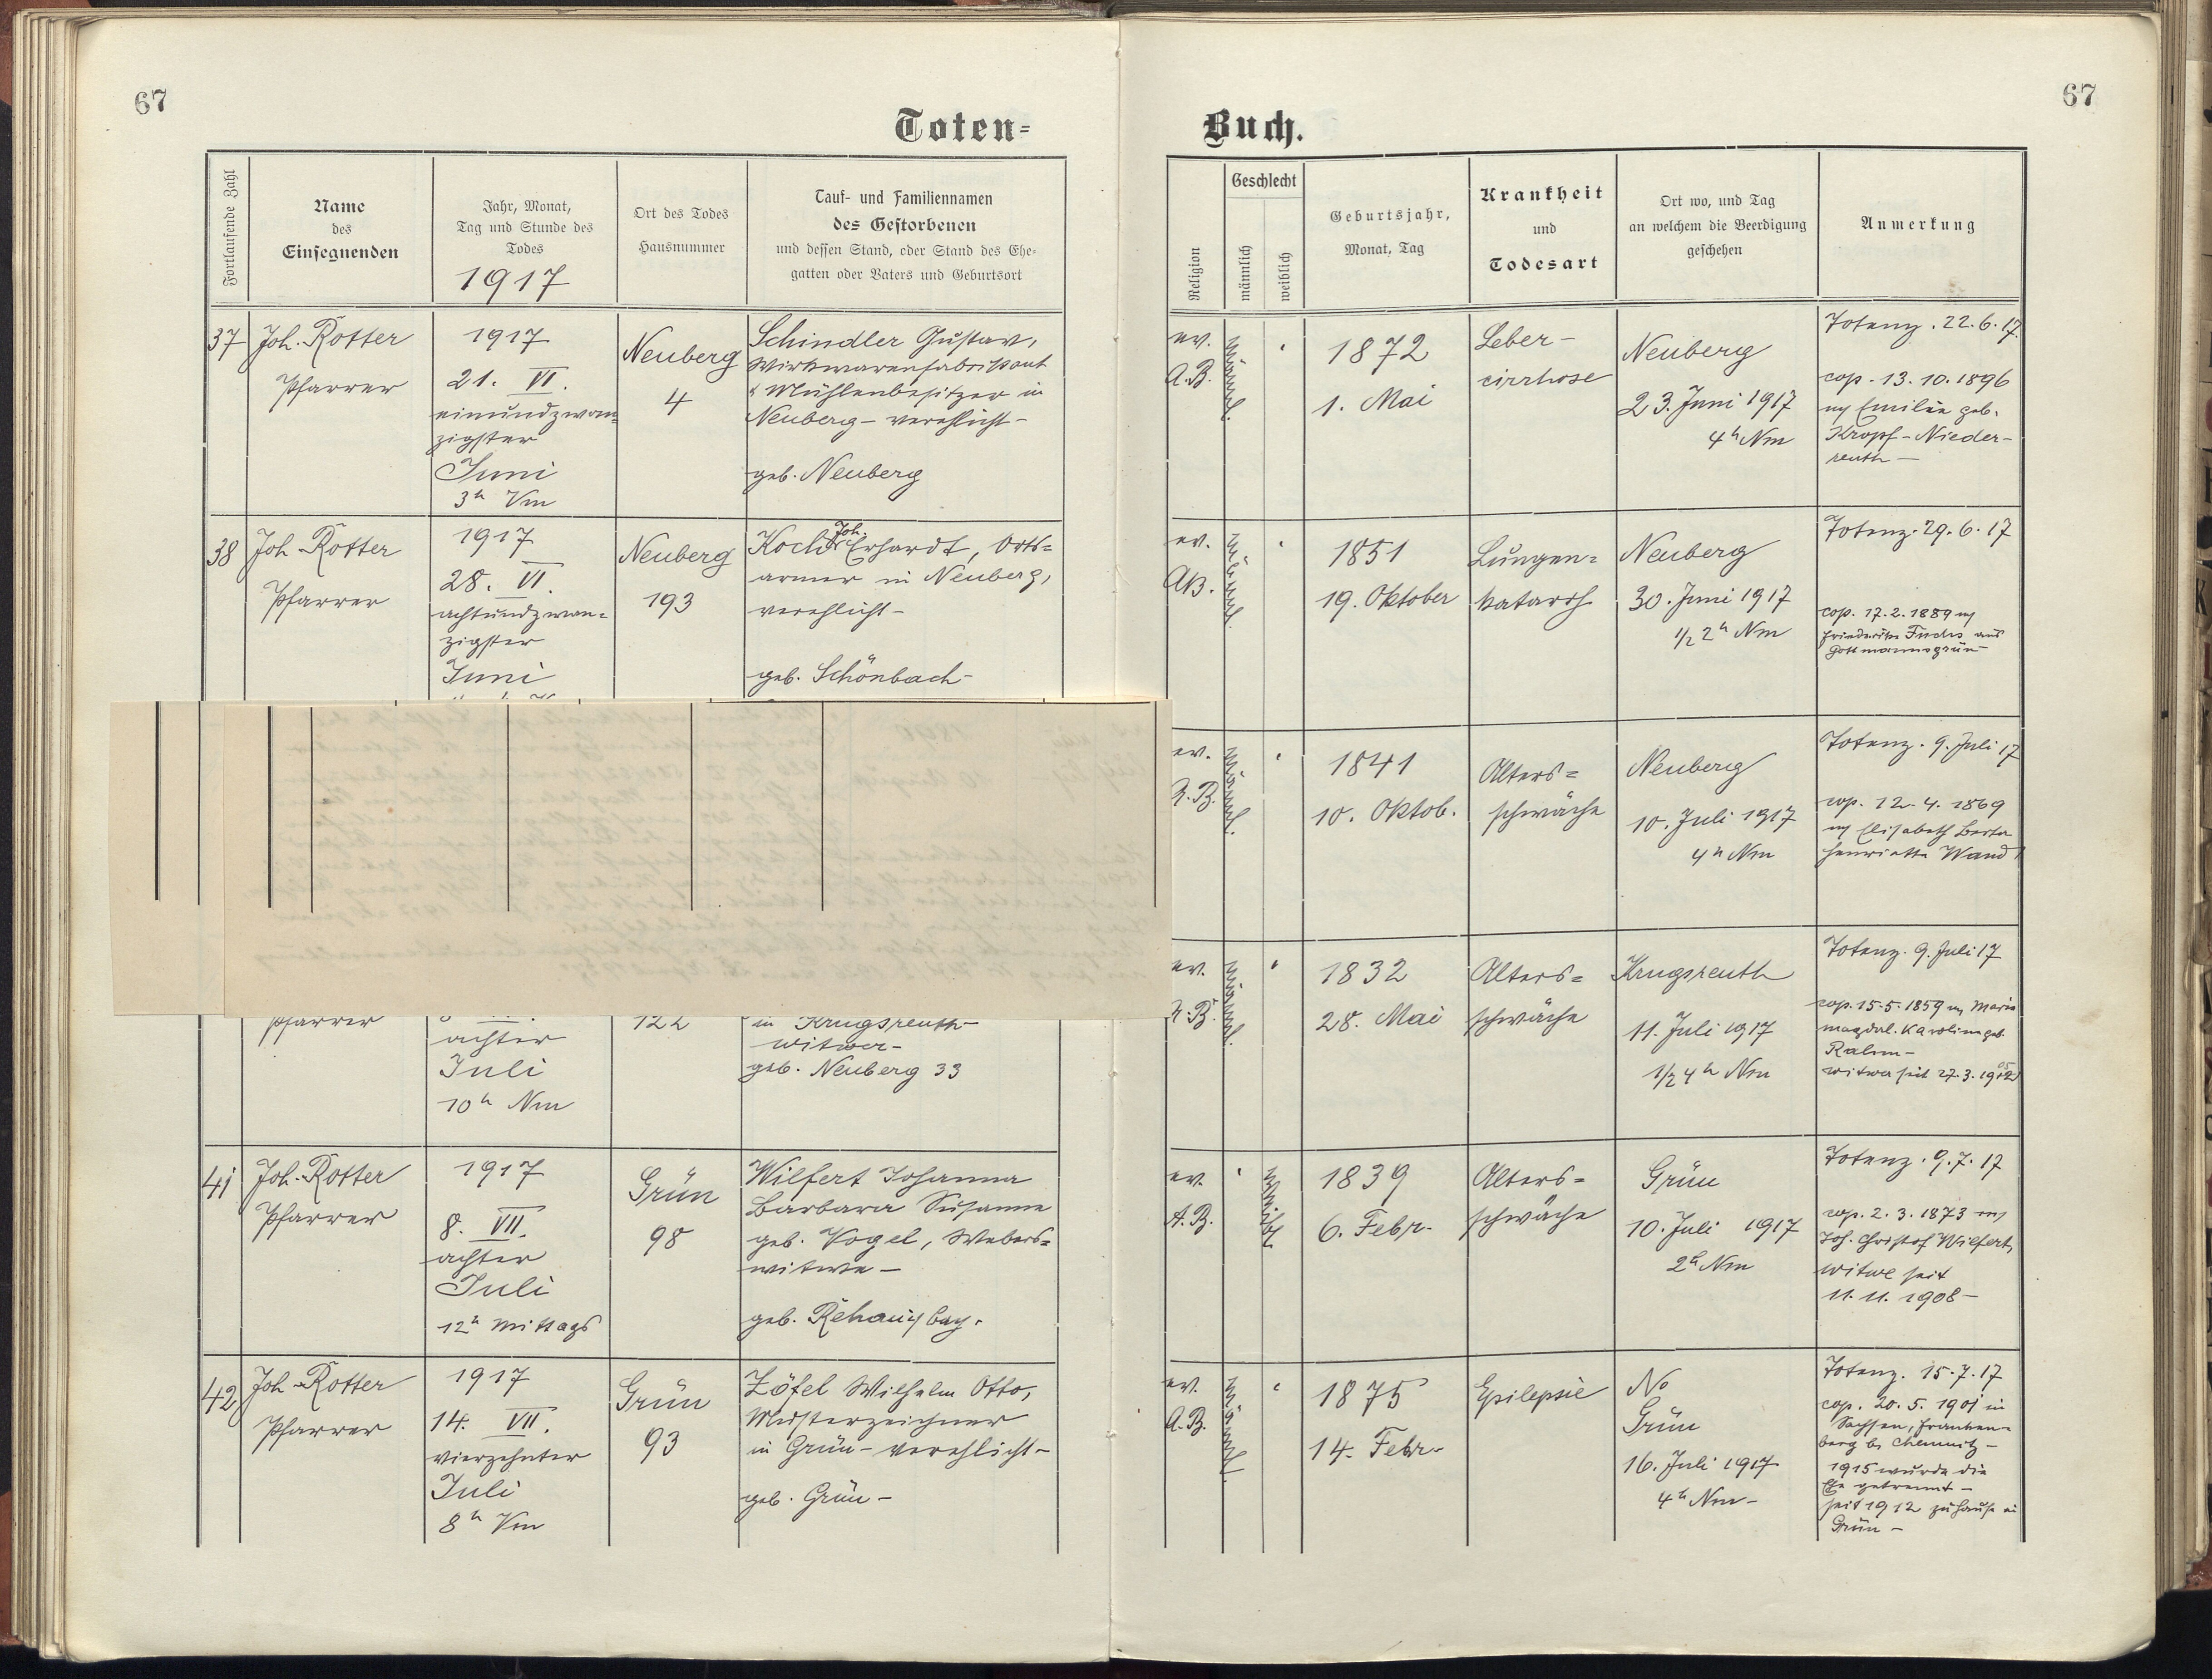 67
67
Toten=
Buch.
Fortlaufende Zahl
Name
des
Einsegnenden
Jahr, Monat,
Tag und Stunde des
Todes
1917
Ort des Todes
Hausnummer
Tauf- und Familiennamen
des Gestorbenen
und dessen Stand, oder Stand des Ehe-
gatten oder Vaters und Geburtsort
Religion
Geschlecht
männlich
weiblich
Geburtsjahr,
Monat, Tag
Krankheit
und
Todesart
Ort wo, und Tag
an welchem die Beerdigung
geschehen
Anmerkung
37
Joh. Rotter
Pfarrer
1917
21. VI.
einundzwan=
zigster
Juni
3h Vm
Neuberg
4
Schindler Gustav,
Wirkwarenfabrikant
& Mühlenbesitzer in
Neuberg - verehlicht -
geb. Neuberg
ev.
A.B.
männl.
1872
1. Mai
Leber-
cirrhose
Neuberg
23. Juni 1917
4h Nm
Totenz. 22.6.17
cop. 13.10.1896
m/ Emilie geb.
Kropf - Nieder-
reuth -
38
Joh. Rotter
Pfarrer
1917
28. VI.
achtundzwan=
zigster
Juni
Neuberg
193
Joh.
Koch Erhardt, Orts=
armer in Neuberg,
verehlicht -
geb. Schönbach -
ev.
AB.
männl.
1851
19. Oktober
Lungen=
katarrh
Neuberg
30. Juni 1917
1/2 2h Nm
Totenz. 29.6.17
cop. 17.2.1889 m/
Friederike Fuchs aus
Gottmannsgrün -
ev.
A.B.
männl.
1841
10. Oktob.
Alters=
schwäche
Neuberg
10. Juli 1917
4h Nm
Totenz. 9. Juli 17
cop. 12.4.1869
m/ Elisabeth Berta
Henriette Wand
Pfarrer
achter
Juli
10h Nm
122
in Krugsreuth -
witwer -
geb. Neuberg 33
ev.
A.B.
männl.
1832
28. Mai
Alters=
schwäche
Krugsreuth
11. Juli 1917
1/2 4h Nm
Totenz. 9. Juli 17
cop. 15.5.1859 m/ Maria
Magdal. Karolina geb.
Rahm -
witwer seit 27.3.
41
Joh. Rotter
Pfarrer
1917
8. VII.
achter
Juli
12h Mittags
Grün
98
Wilfert Johanna
Barbara Susanne
geb. Vogel, Webers=
witwe -
geb. Rehau i/ Bay.
ev.
A.B.
weibl.
1839
6. Febr.
Alters=
schwäche
Grün
10. Juli 1917
2h Nm
Totenz. 9.7.17
cop. 2.3.1873 m/
Joh. Christof Wilfert,
witwe seit
11.11.1908 -
42
Joh. Rotter
Pfarrer
1917
14. VII.
vierzehnter
Juli
8h Vm
Grün
93
Zöfel Wilhelm Otto,
Musterzeichner
in Grün - verehlicht -
geb. Grün -
ev.
A.B.
männl.
1875
14. Febr.
Epilepsie
No
Grün
16. Juli 1917
4h Nm -
Totenz. 15.7.17
cop. 20.5.1901 in
Sachsen, Franken=
berg b. Chemnitz -
1915 wurde die
Ehe getrennt -
seit 1912 zuhause in
Grün -